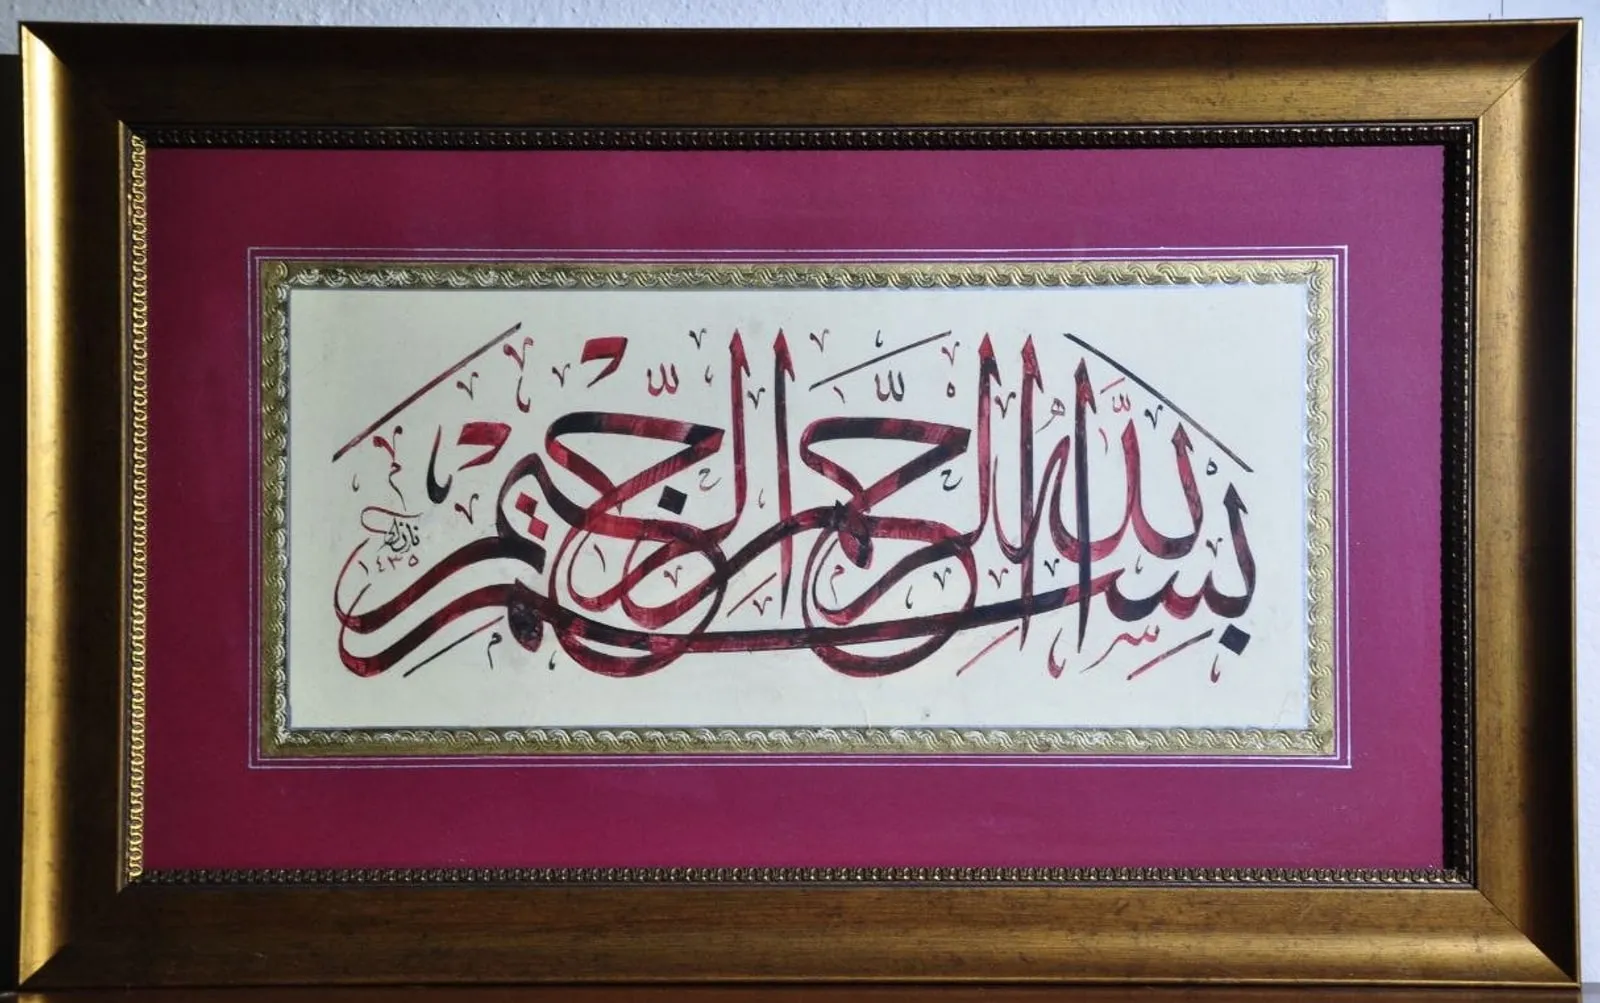 بسم الله الرحمن الرحيم
١٤٣٥